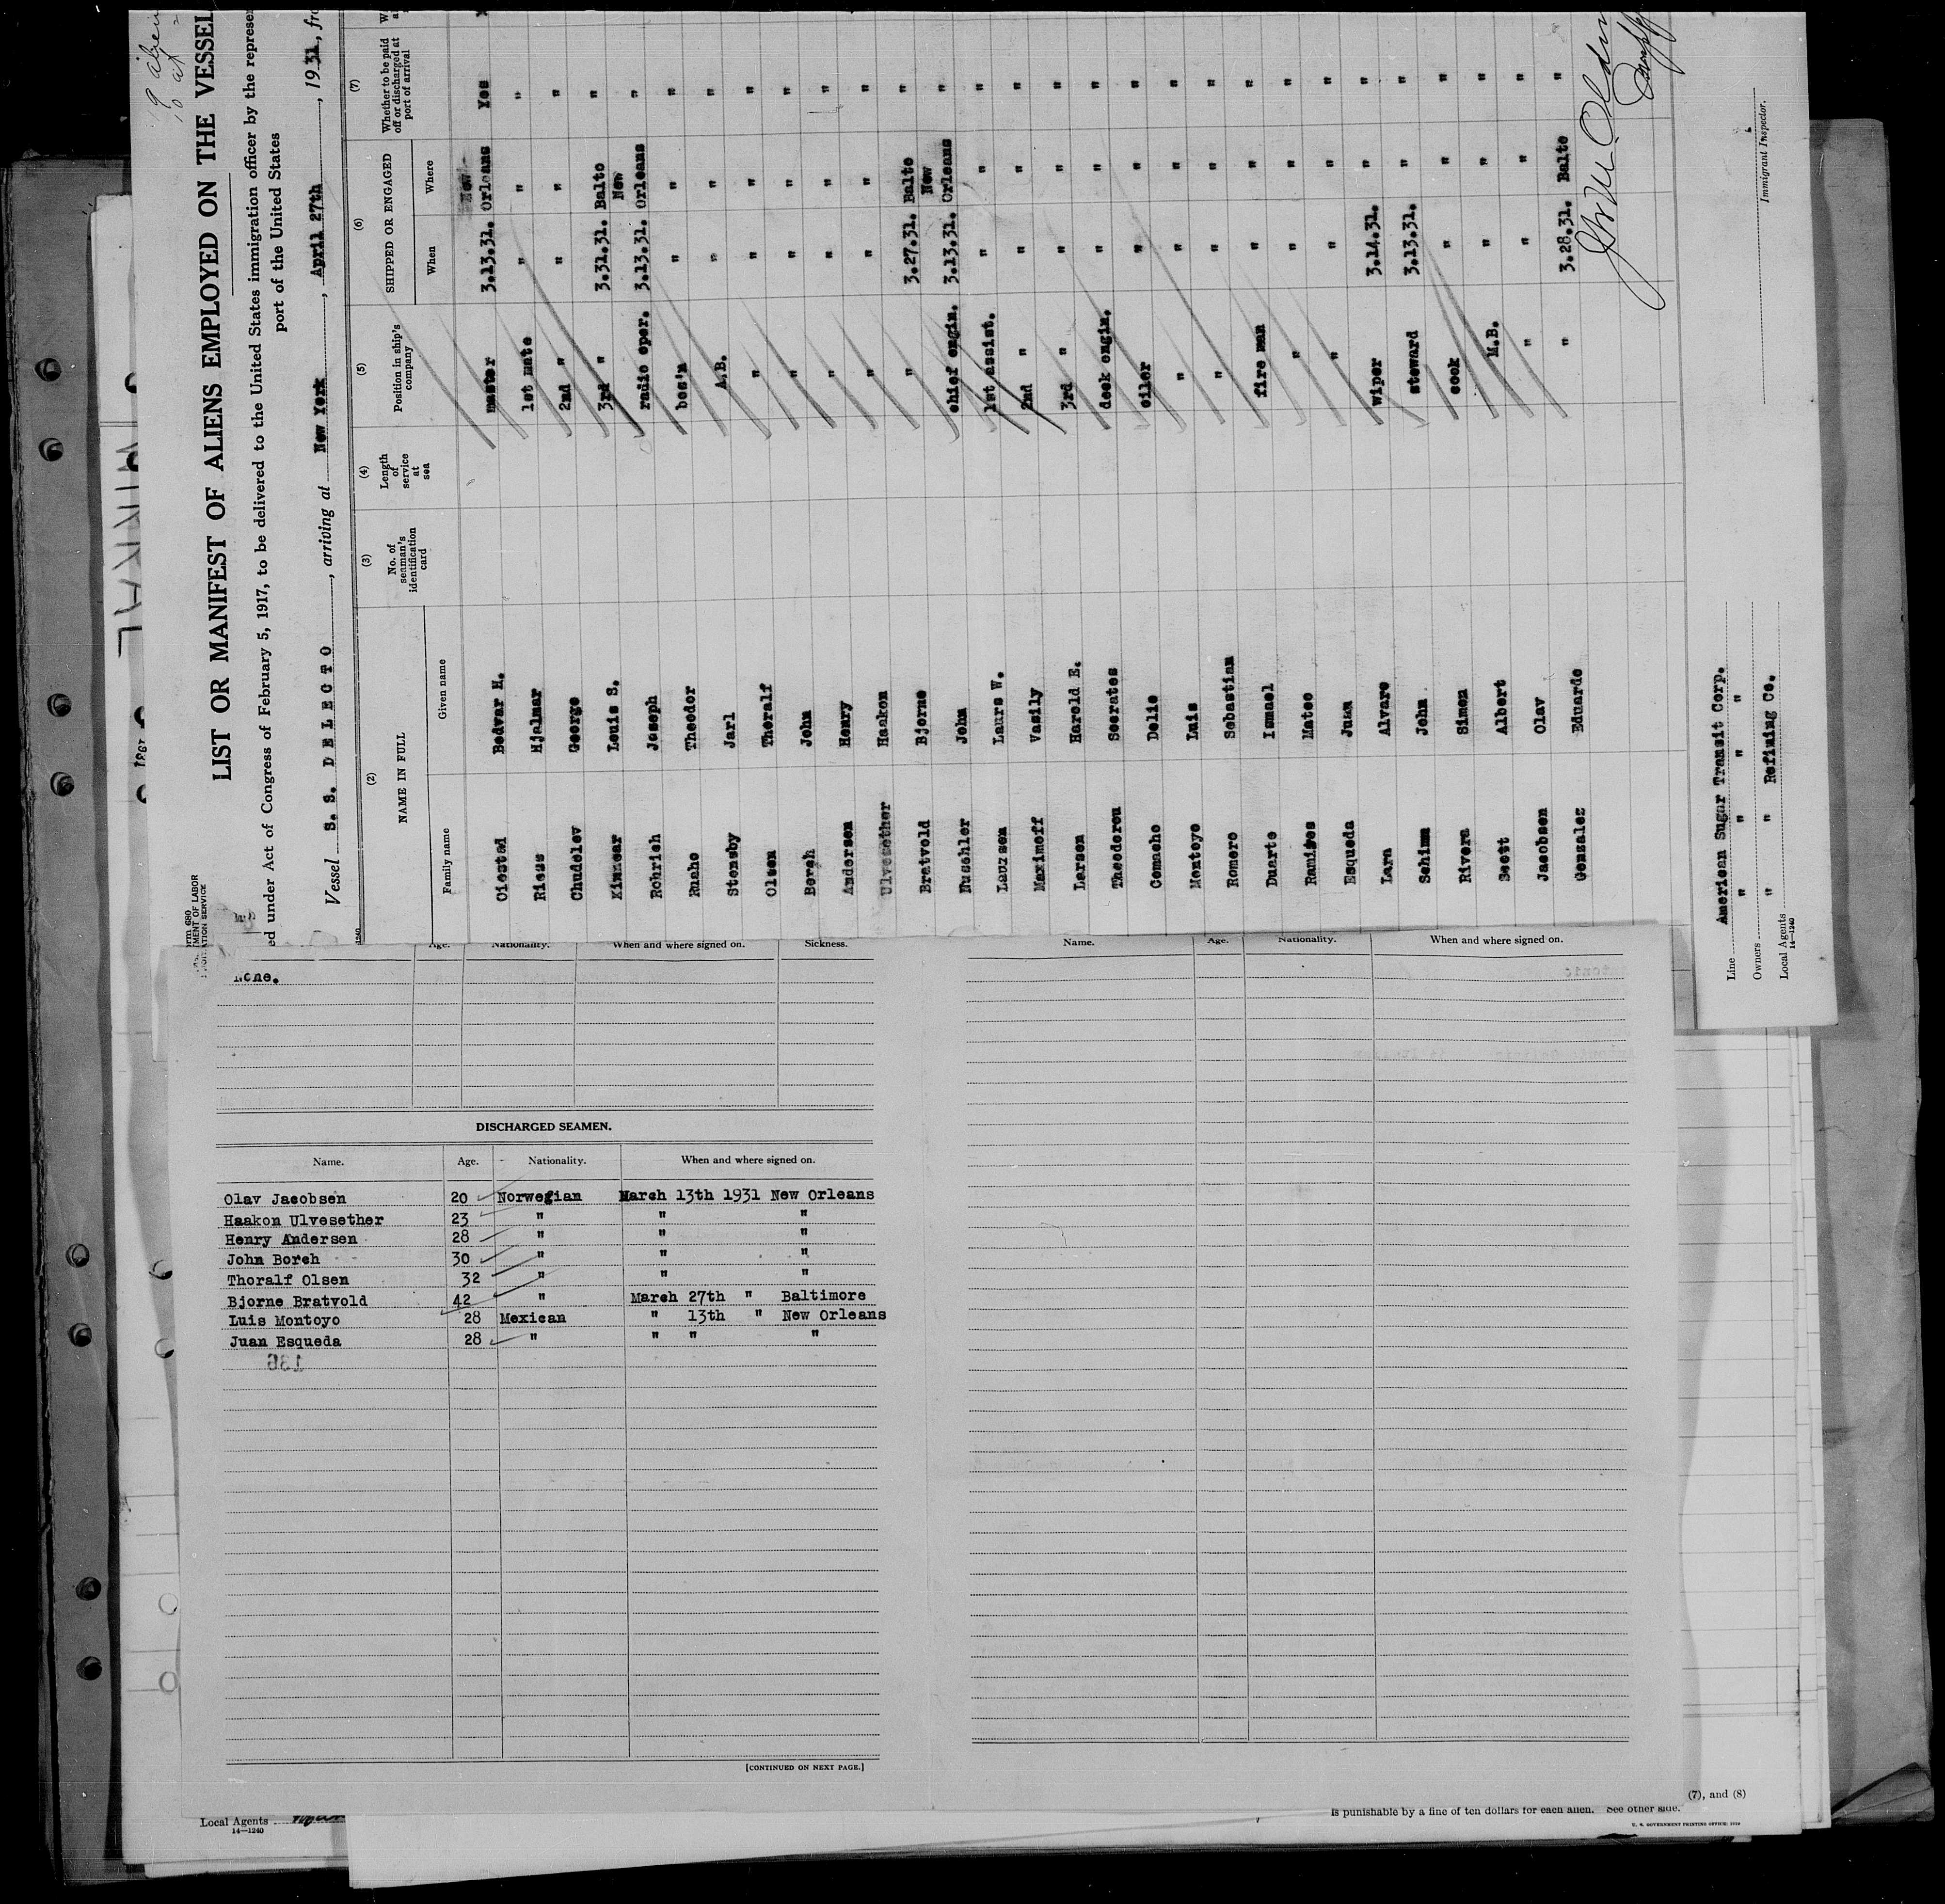 LIST OR MANIFEST OF ALIENS EMPLOYED ON THE VESSEL
ed under Act of Congress of February 5, 1917, to be delivered to the United States immigration officer by the represen
port of the United States
Vessel S. S. DELECTO, arriving at New York, April 27th, 1931, fro
(2) (3) (4) (5) (6) (7)
NAME IN FULL No. of seaman's identification card Length of service at sea Position in ship's company SHIPPED OR ENGAGED Whether to be paid off or discharged at port of arrival
Family name Given name When Where
Oiestad Bedvar H. master 3.13.31. New Orleans Yes
Riess Hjalmar 1st mate " " "
Chudelev George 2nd " " " "
Kinnear Louis S. 3rd " 3.31.31. Balto "
Rohrich Joseph radio oper. 3.13.31. New Orleans "
Ruahe Theodor bos'n " " "
Stensby Jarl A.B. " " "
Olsen Thoralf " " " "
Boreh John " " " "
Andersen Henry " " " "
Ulvesether Haakon " " " "
Bratvold Bjorne " 3.27.31. Balto "
Huschler John chief engin. 3.13.31. New Orleans "
Laursen Laurs W. 1st assist. " " "
Maximoff Vasily 2nd " " " "
Larsen Harold E. 3rd " " " "
Theodorou Socrates deck engin. " " "
Comacho Delio oiler " " "
Montoyo Luis " " " "
Romero Sebastian " " " "
Duarte Ismael fire man " " "
Ramires Mateo " " " "
Esqueda Juan " " " "
Lara Alvaro wiper 3.14.31. " "
Schimm John steward 3.13.31. " "
Rivera Simon cook " " "
Scott Albert M.B. " " "
Jacobsen Olav " " " "
Gonzalez Eduardo " 3.28.31. Balto "
Line American Sugar Transit Corp.
Owners " " " "
Local Agents " " Refining Co.
14—1240
Immigrant Inspector.
Age. Nationality. When and where signed on. Sickness.
None.
DISCHARGED SEAMEN.
Name. Age. Nationality. When and where signed on.
Olav Jacobsen 20 Norwegian March 13th 1931 New Orleans
Haakon Ulvesether 23 " " "
Henry Andersen 28 " " "
John Boreh 30 " " "
Thoralf Olsen 32 " " "
Bjorne Bratvold 42 " March 27th " Baltimore
Luis Montoyo 28 Mexican " 13th " New Orleans
Juan Esqueda 28 " " " "
136
[CONTINUED ON NEXT PAGE.]
Name. Age. Nationality. When and where signed on.
(7), and (8)
is punishable by a fine of ten dollars for each alien. See other side.
U. S. GOVERNMENT PRINTING OFFICE: 1930
Local Agents
14—1240